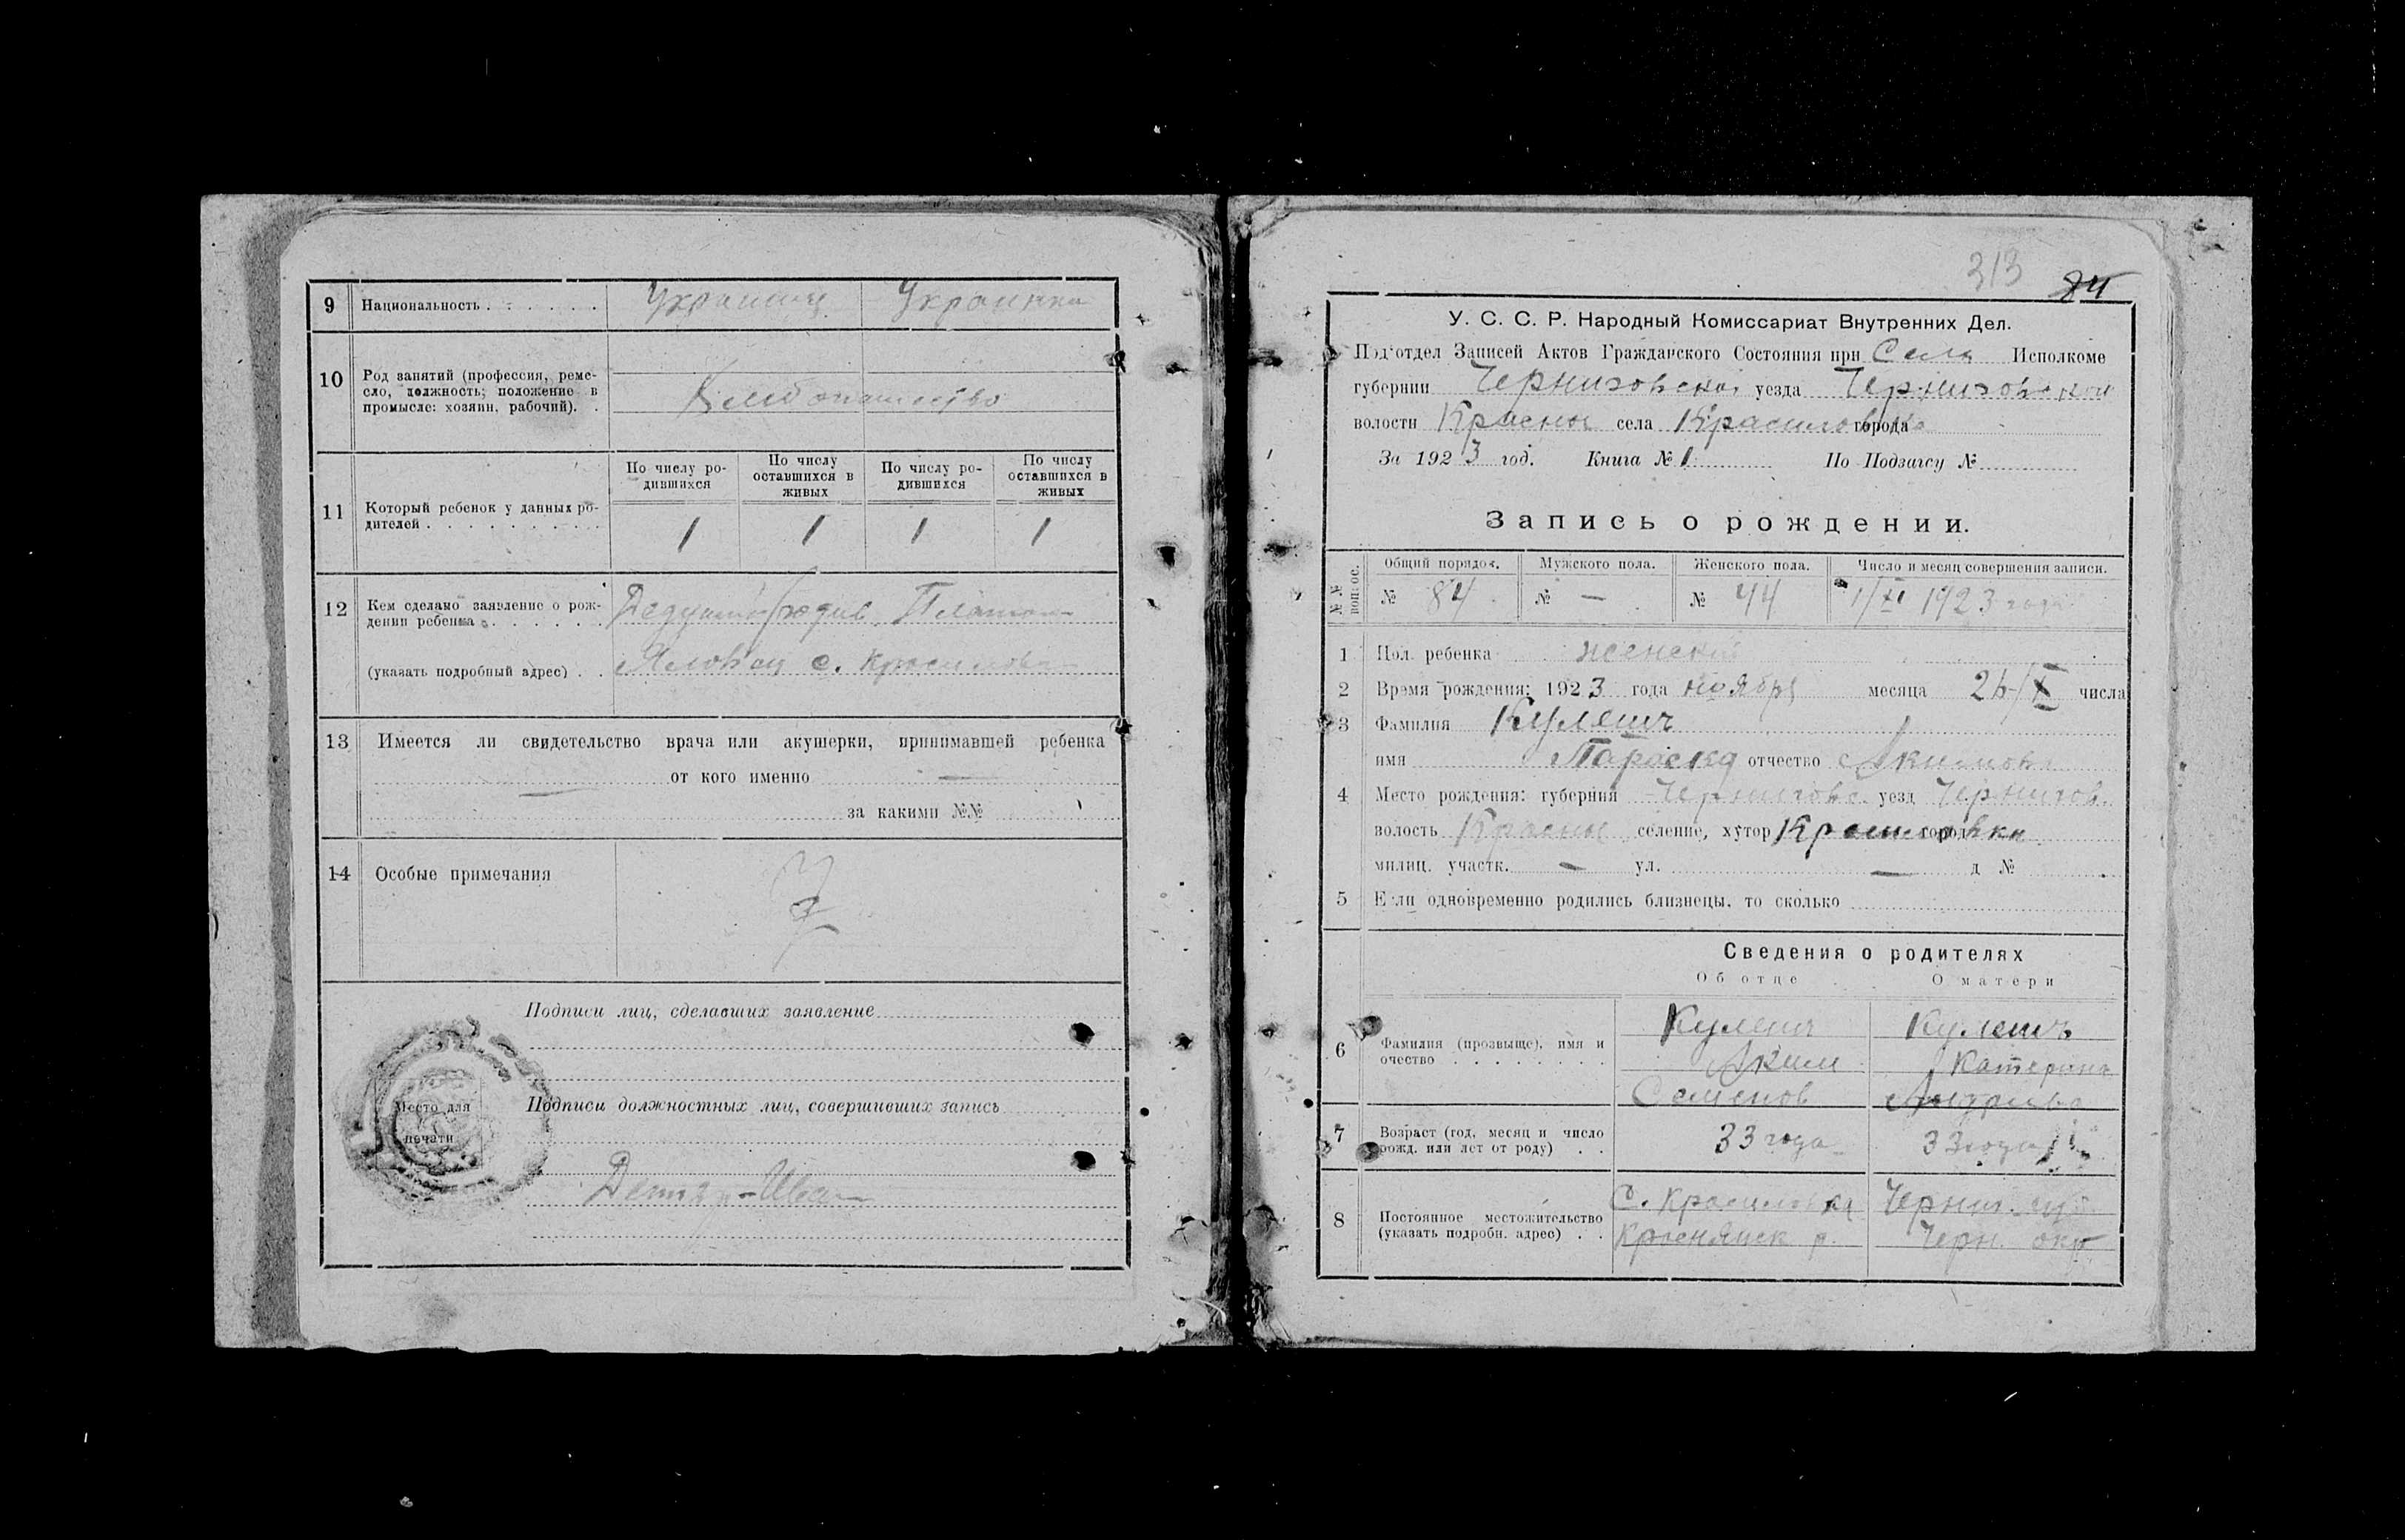 9 Национальность . . . . . . Украинец Украинка
10 Род занятий (профессия, реме-
сло, должность; положение в
промысле: хозяин, рабочий). .
Хлебопашество
11 Который ребенок у данных ро-
дителей . . . . . . . . . .
По числу ро-
дившихся
По числу
оставшихся в
живых
По числу ро-
дившихся
По числу
оставшихся в
живых
1 1 1 1
12 Кем сделано заявление о рож-
дении ребенка . . . . . .
(указать подробный адрес) . .
с.
13 Имеется ли свидетельство врача или акушерки, принимавшей ребенка
— от кого именно —
за какими №№
14 Особые примечания
Подписи лиц, сделавших заявление
Место для
печати
Подписи должностных лиц, совершивших запись
313 84
У. С. С. Р. Народный Комиссариат Внутренних Дел.
Под'отдел Записей Актов Гражданского Состояния при Исполкоме
губернии Черниговской уезда Черниговской
волости села Красиловка города
За 1923 год. Книга № 1 По Подзагсу №
Запись о рождении.
№№ вопрос.
Общий порядок. Мужского пола. Женского пола. Число и месяц совершения записи.
№ 84 № — № 44 1/XI 1923 года
1 Пол ребенка женский
2 Время рождения: 1923 года ноября месяца числа
3 Фамилия Кулешъ
имя Параска отчество Акимова
4 Место рождения: губерния уезд Чернигов.
волость селение, хутор Красиловка город
милиц. участк. — ул. — д №
5 Если одновременно родились близнецы, то сколько
Сведения о родителях
Об отце О матери
6 Фамилия (прозвыще), имя и
очество . . . . . . . .
Кулешъ Кулешъ
Аким Катерина
Семенов
7 Возраст (год, месяц и число
рожд. или лет от роду) . .
33 года 33 года
8 Постоянное местожительство
(указать подробн. адрес) . .
С. Красиловка Черниг. губ.
Краснянск р. Черн. окр.